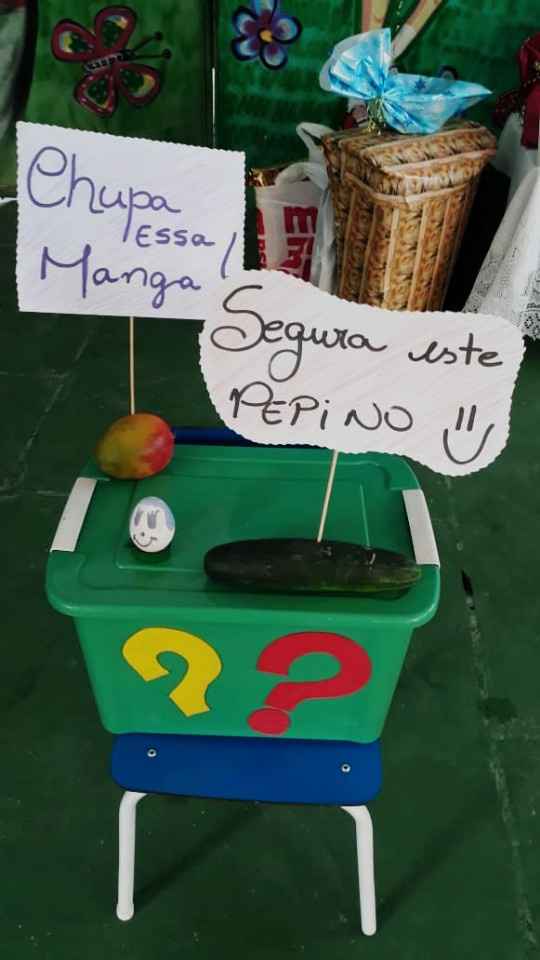 Chupa
Essa
Manga!
Segura este
PEPiNO
? ?